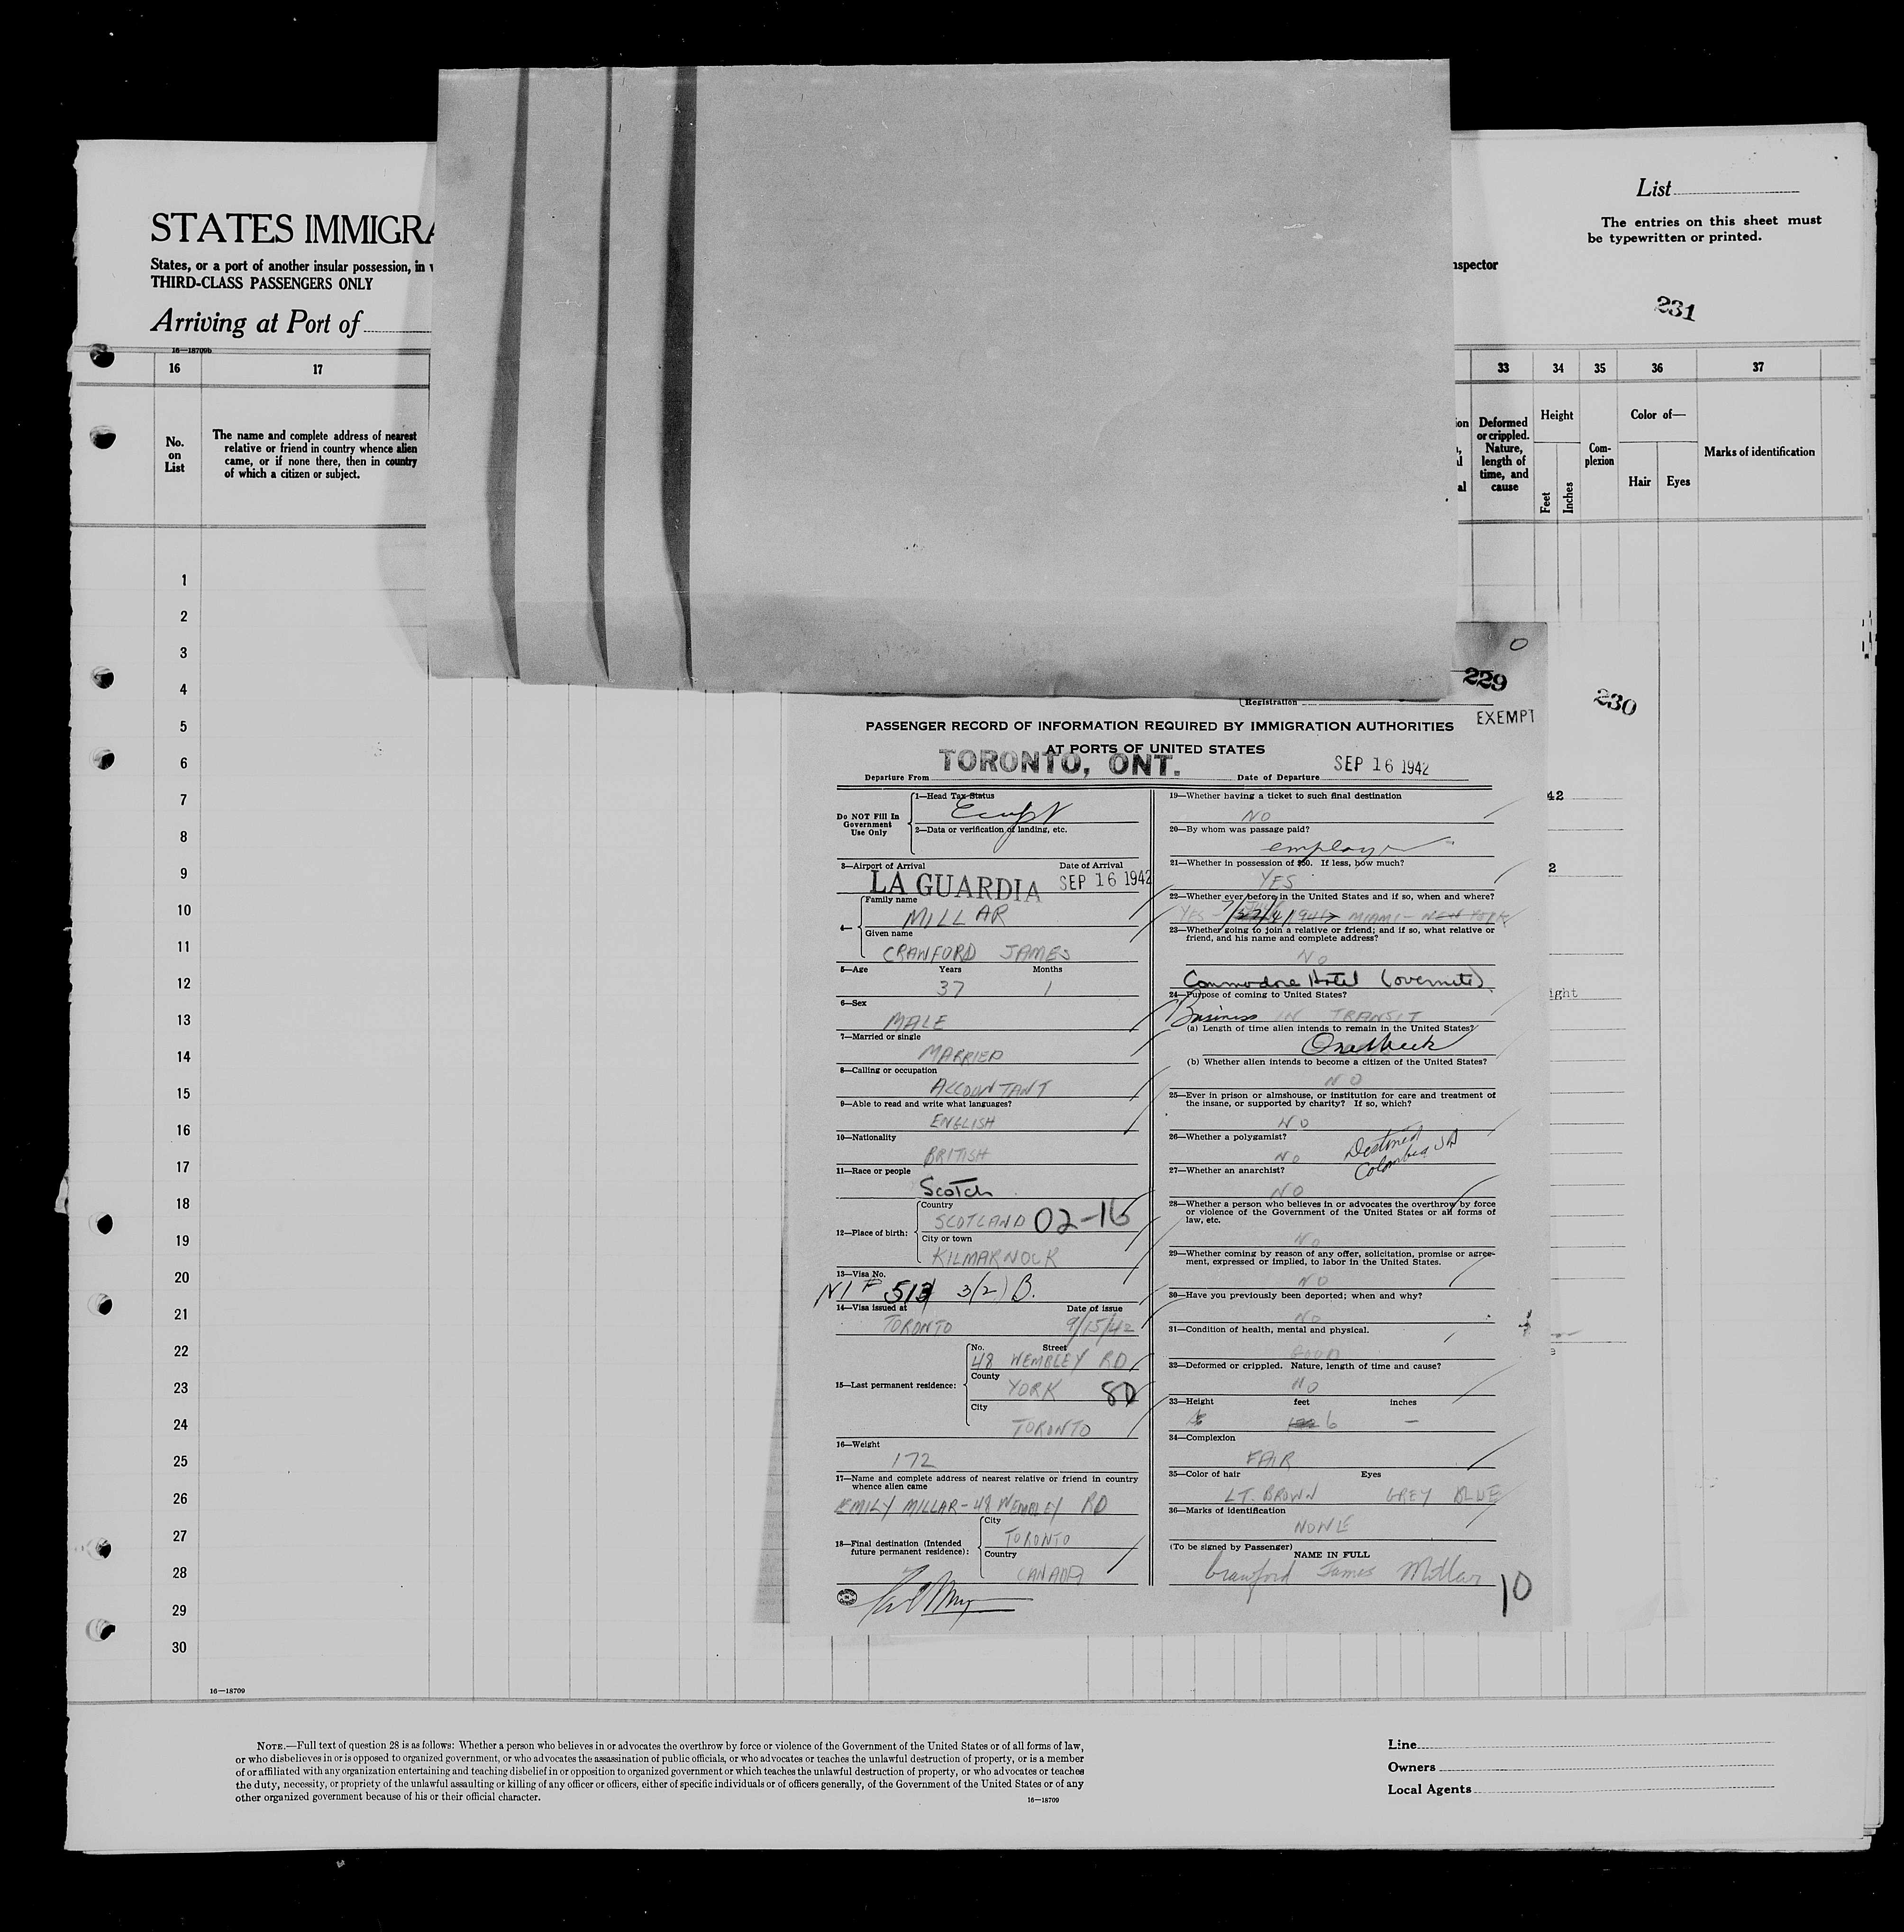 List
The entries on this sheet must
be typewritten or printed.
STATES IMMIGRA
States, or a port of another insular possession, in
THIRD-CLASS PASSENGERS ONLY
nspector
231
Arriving at Port of
16—18709b
16 17 33 34 35 36 37
No.
on
List
The name and complete address of nearest
relative or friend in country whence alien
came, or if none there, then in country
of which a citizen or subject.
Deformed
or crippled.
Nature,
length of
time, and
cause
Height
Feet
Inches
Com-
plexion
Color of—
Hair Eyes
Marks of identification
1
2
3
4
5
6
7
8
9
10
11
12
13
14
15
16
17
18
19
20
21
22
23
24
25
26
27
28
29
30
229
230
Registration
EXEMPT
PASSENGER RECORD OF INFORMATION REQUIRED BY IMMIGRATION AUTHORITIES
AT PORTS OF UNITED STATES
Departure From TORONTO, ONT. Date of Departure SEP 16 1942
Do NOT Fill In
Government
Use Only
1—Head Tax Status
2—Data or verification of landing, etc.
3—Airport of Arrival Date of Arrival
LA GUARDIA SEP 16 1942
4—
Family name
MILLAR
Given name
CRAWFORD JAMES
5—Age Years Months
37 1
6—Sex
MALE
7—Married or single
MARRIED
8—Calling or occupation
ACCOUNTANT
9—Able to read and write what languages?
ENGLISH
10—Nationality
BRITISH
11—Race or people
Scotch
12—Place of birth:
Country
SCOTLAND 02-16
City or town
KILMARNOCK
13—Visa No.
513 3(2) B.
14—Visa issued at Date of issue
TORONTO 9/15/42
15—Last permanent residence:
No. Street
48 WEMBLEY RD
County
YORK 8D
City
TORONTO
16—Weight
172
17—Name and complete address of nearest relative or friend in country
whence alien came
EMILY MILLAR - 48 WEMBLEY RD
18—Final destination (Intended
future permanent residence):
City
TORONTO
Country
CANADA
19—Whether having a ticket to such final destination
NO
20—By whom was passage paid?
employer
21—Whether in possession of $50. If less, how much?
YES
22—Whether ever before in the United States and if so, when and where?
YES - MIAMI - NEW YORK
23—Whether going to join a relative or friend; and if so, what relative or
friend, and his name and complete address?
NO
Commodore Hotel (overnite)
24—Purpose of coming to United States?
Business IN TRANSIT
(a) Length of time alien intends to remain in the United States?
One Week
(b) Whether alien intends to become a citizen of the United States?
NO
25—Ever in prison or almshouse, or institution for care and treatment of
the insane, or supported by charity? If so, which?
NO
26—Whether a polygamist?
NO
Destined
Colombia SA
27—Whether an anarchist?
NO
28—Whether a person who believes in or advocates the overthrow by force
or violence of the Government of the United States or all forms of
law, etc.
NO
29—Whether coming by reason of any offer, solicitation, promise or agree-
ment, expressed or implied, to labor in the United States.
NO
30—Have you previously been deported; when and why?
NO
31—Condition of health, mental and physical.
GOOD
32—Deformed or crippled. Nature, length of time and cause?
NO
33—Height feet inches
6 —
34—Complexion
FAIR
35—Color of hair Eyes
LT. BROWN GREY BLUE
36—Marks of identification
NONE
(To be signed by Passenger)
NAME IN FULL
Crawford James Millar
10
42
2
ight
16—18709
NOTE.—Full text of question 28 is as follows: Whether a person who believes in or advocates the overthrow by force or violence of the Government of the United States or of all forms of law,
or who disbelieves in or is opposed to organized government, or who advocates the assassination of public officials, or who advocates or teaches the unlawful destruction of property, or is a member
of or affiliated with any organization entertaining and teaching disbelief in or opposition to organized government or which teaches the unlawful destruction of property, or who advocates or teaches
the duty, necessity, or propriety of the unlawful assaulting or killing of any officer or officers, either of specific individuals or of officers generally, of the Government of the United States or of any
other organized government because of his or their official character.
16—18709
Line
Owners
Local Agents